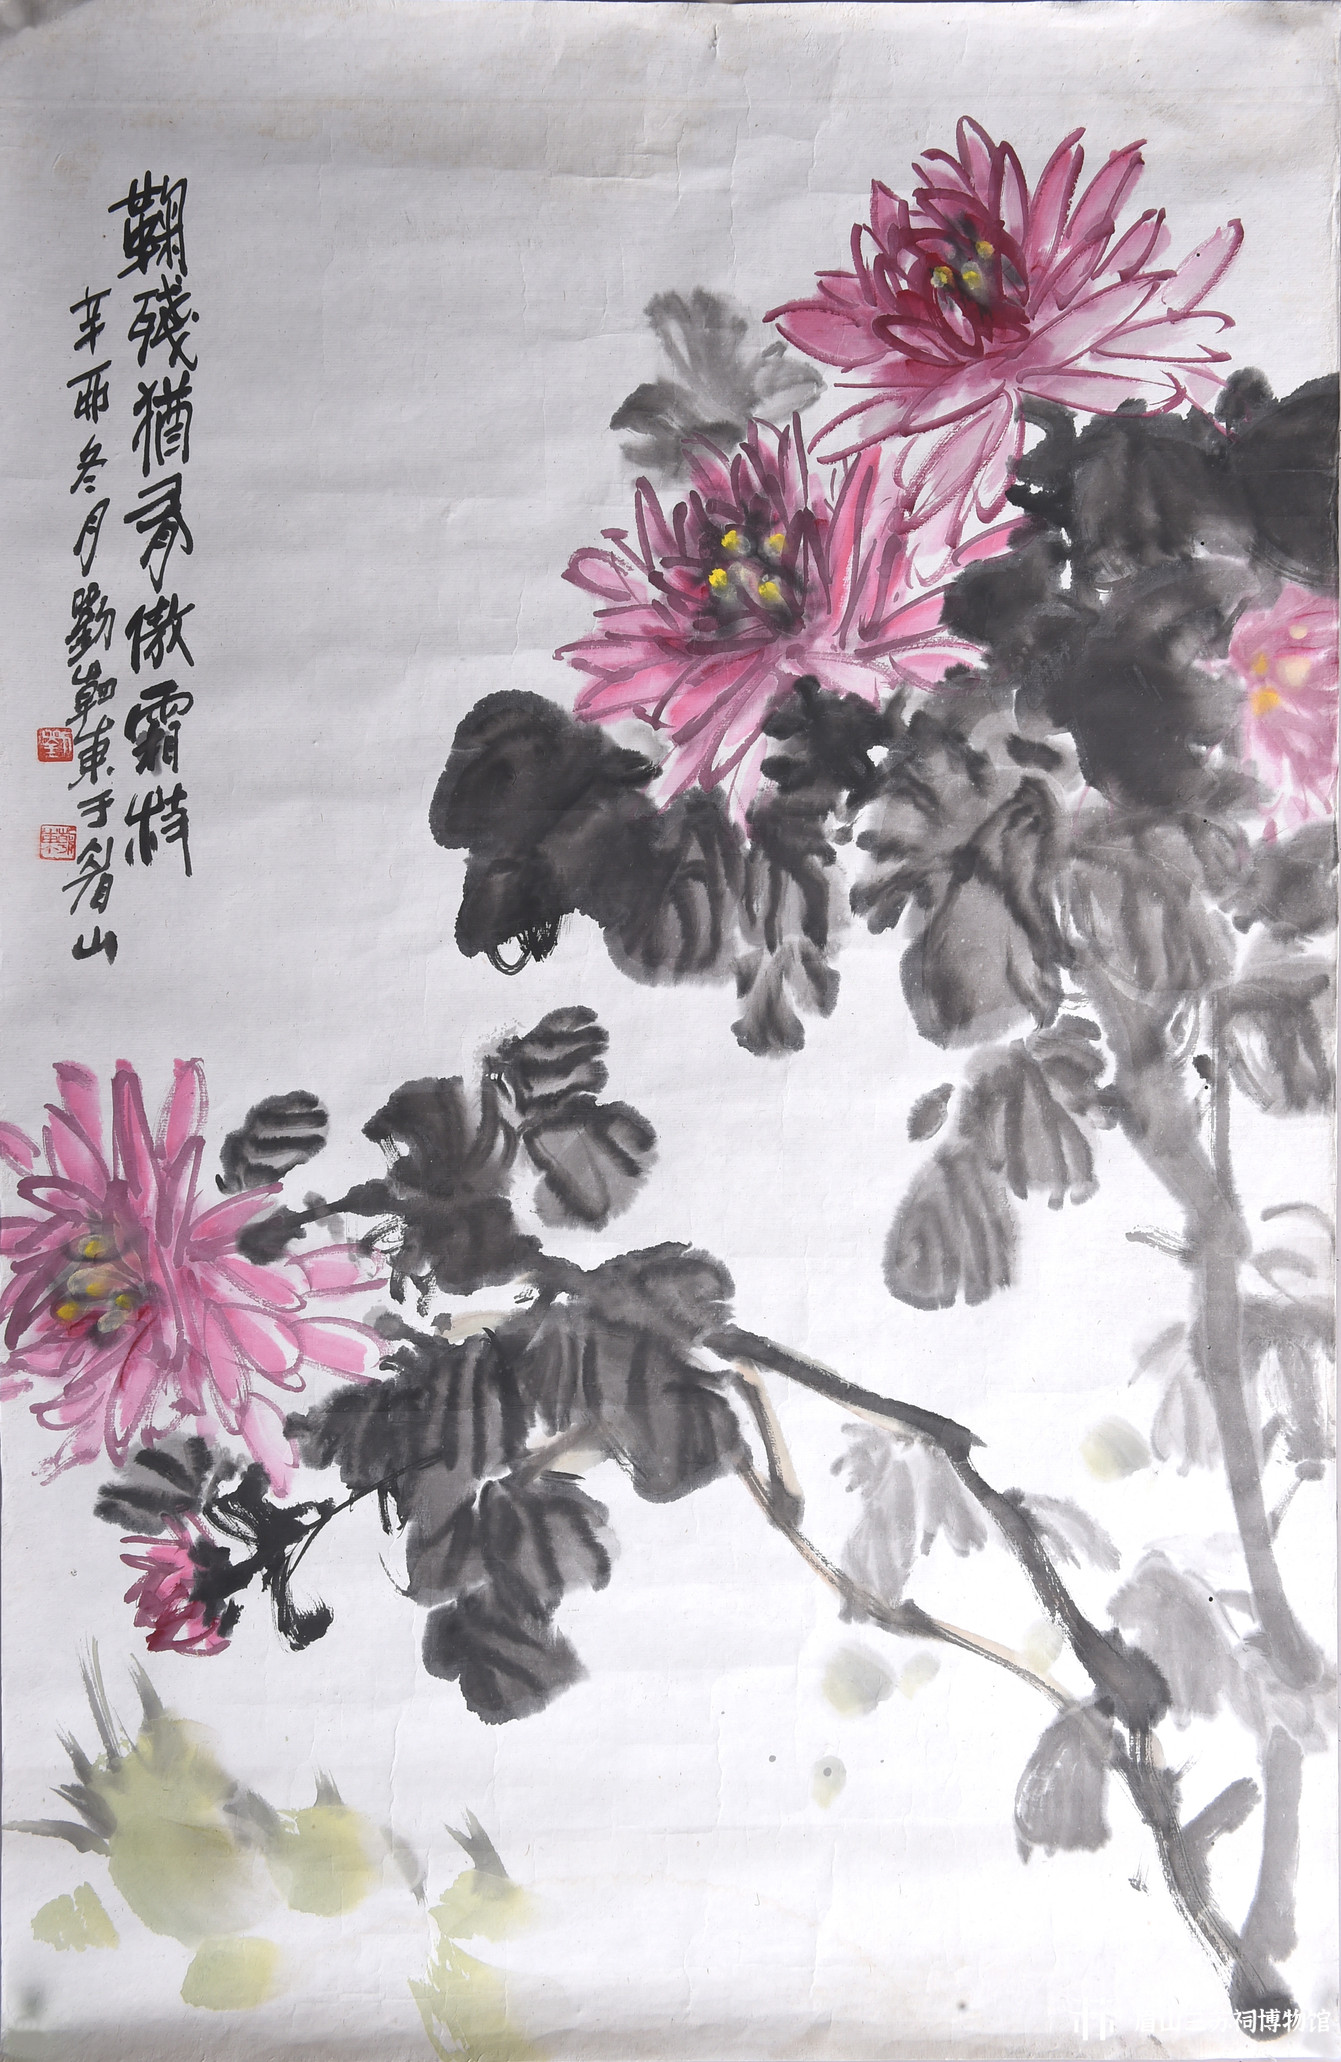 鞠残犹有傲霜枝
辛酉冬月刘韌東于眉山
眉山三苏祠博物馆